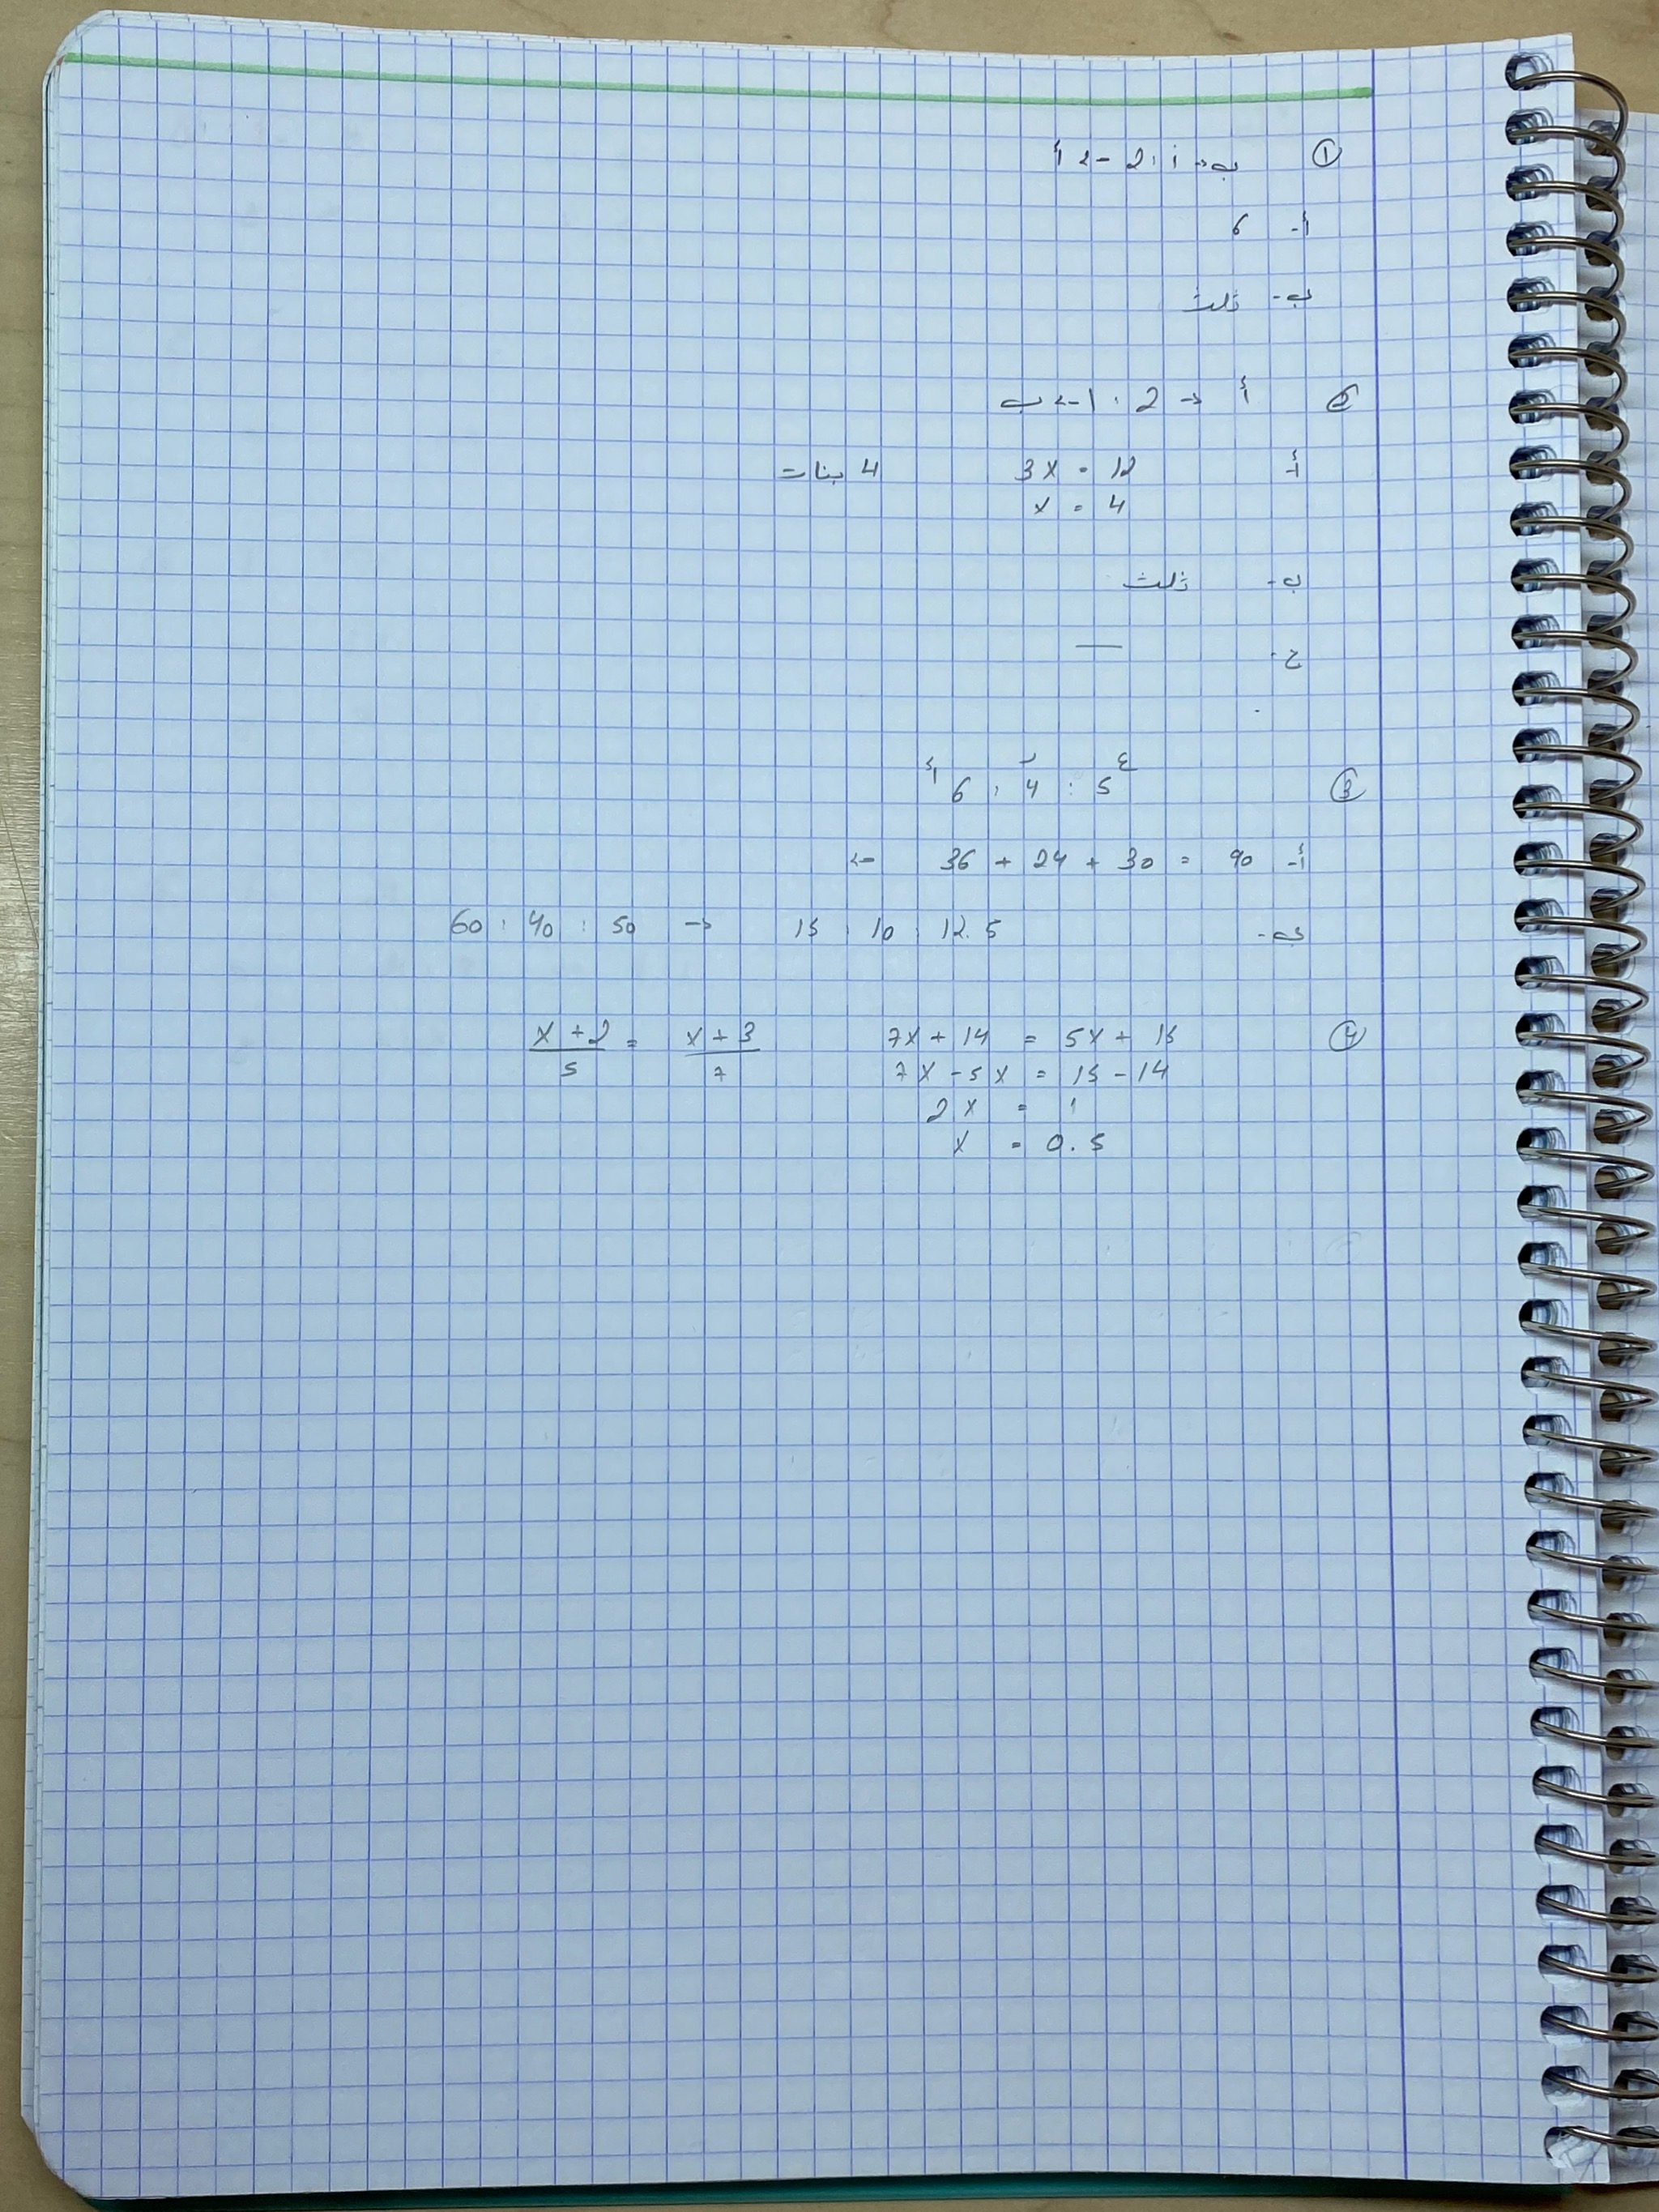 ① ب → 1 : 2 ← أ
أ- 6
ب- ثلث
② أ → 2 : 1 ← ب
أ- 3x = 12 4 بنات
x = 4
ب- ثلث
ج- —
③ أ ر ع
6 : 4 : 5
أ- 36 + 24 + 30 = 90 ←
ب- 60 : 40 : 50 → 15 : 10 : 12.5
④ (x + 2)/5 = (x + 3)/7 7x + 14 = 5x + 15
7x - 5x = 15 - 14
2x = 1
x = 0.5